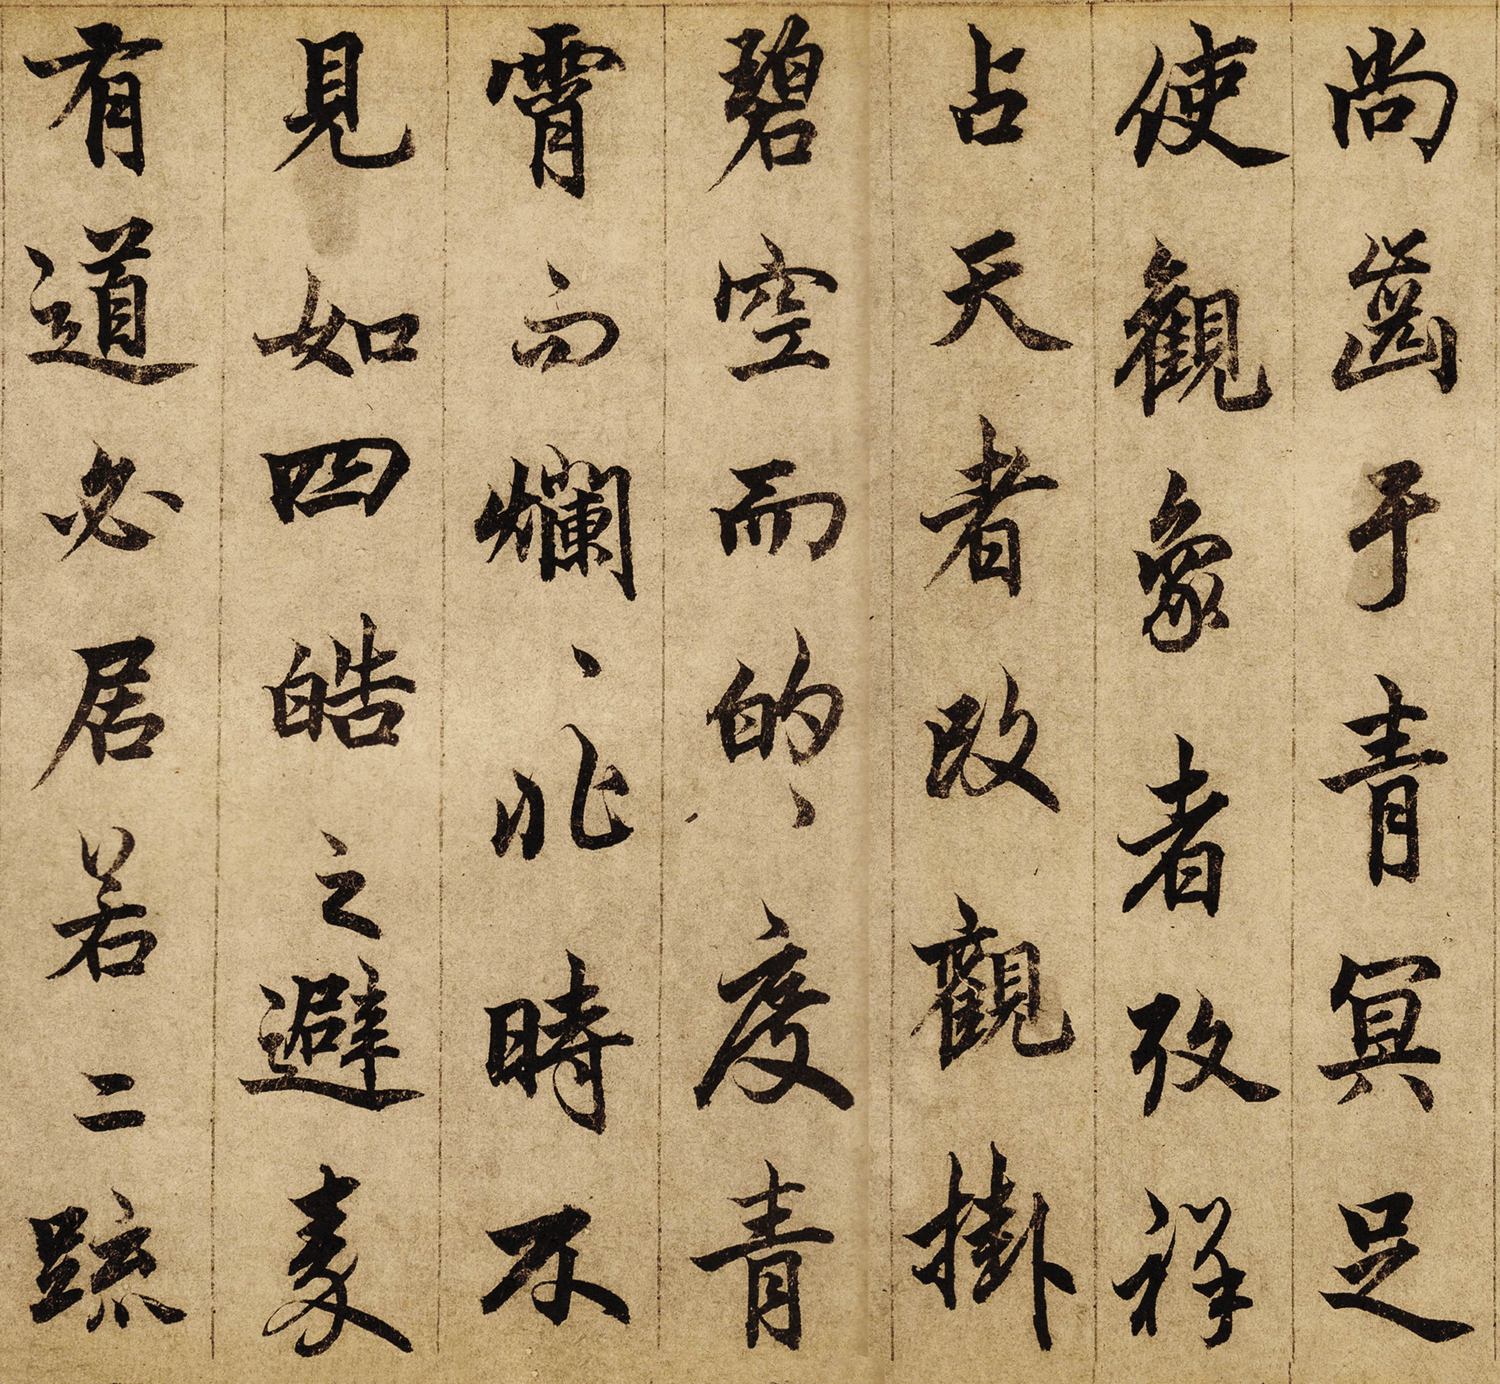 尚齒于青冥足
使觀象者攷祥
占天者改觀掛
碧空而的々度青
霄而爛々非時不
見如四皓之避秦
有道必居若二疏